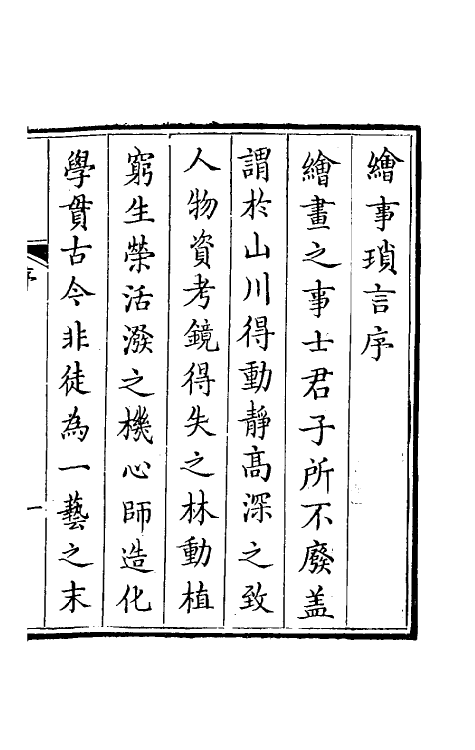 繪事瑣言序
繪畫之事士君子所不廢盖
謂於山川得動靜高深之致
人物資考鏡得失之林動植
窮生榮活潑之機心師造化
學貫古今非徒為一藝之末
序
一